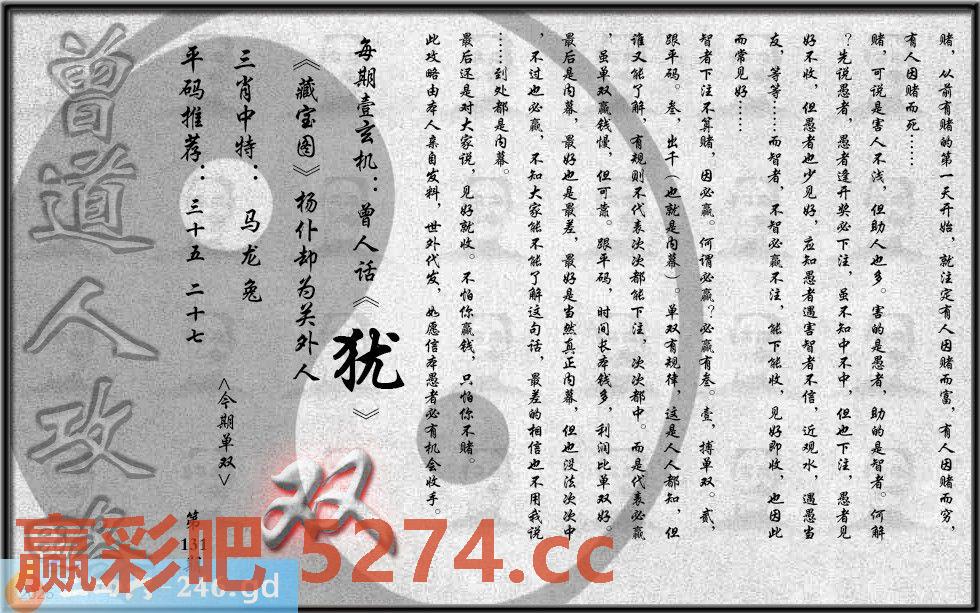 赌，从前有赌的第一天开始，就注定有人因赌而富，有人因赌而穷，
有人因赌而死……
赌，可说是害人不浅，但助人也多。害的是愚者，助的是智者。何解
？先说愚者，愚者逢开奖必下注，虽不知中不中，但也下注，愚者见
好不收，但愚者也少见好，应知愚者遇害智者不信，近观水，遇愚当
友，等等……而智者，不智必赢不注，能下能收，见好即收，也因此
而常见好……
智者下注不算赌，因必赢。何谓必赢？必赢有叁。壹，搏单双。贰，
跟平码。叁，出千（也就是内幕）。单双有规律，这是人人都知，但
谁又能了解，有规则不代表次次都能下注，次次都中。而是代表必赢
，虽单双赢钱慢，但可靠。跟平码，时间长本钱多，利润比单双好。
最后是内幕，最好也是最差，最好是当然真正内幕，但也没法次次中
，不过也必赢，不知大家能不能了解这句话，最差的相信也不用我说
……到处都是内幕。
最后还是对大家说，见好就收。不怕你赢钱，只怕你不赌。
此攻略由本人亲自发料，世外代发，如愿信本愚者必有机会收手。
每期壹玄机：曾人话《犹》
《藏宝图》杨仆却为关外人
三肖中特：马龙兔
平码推荐：三十五 二十七
<今期单双>
双
第131
曾道人攻
赢彩吧 5274.cc
-246.gd